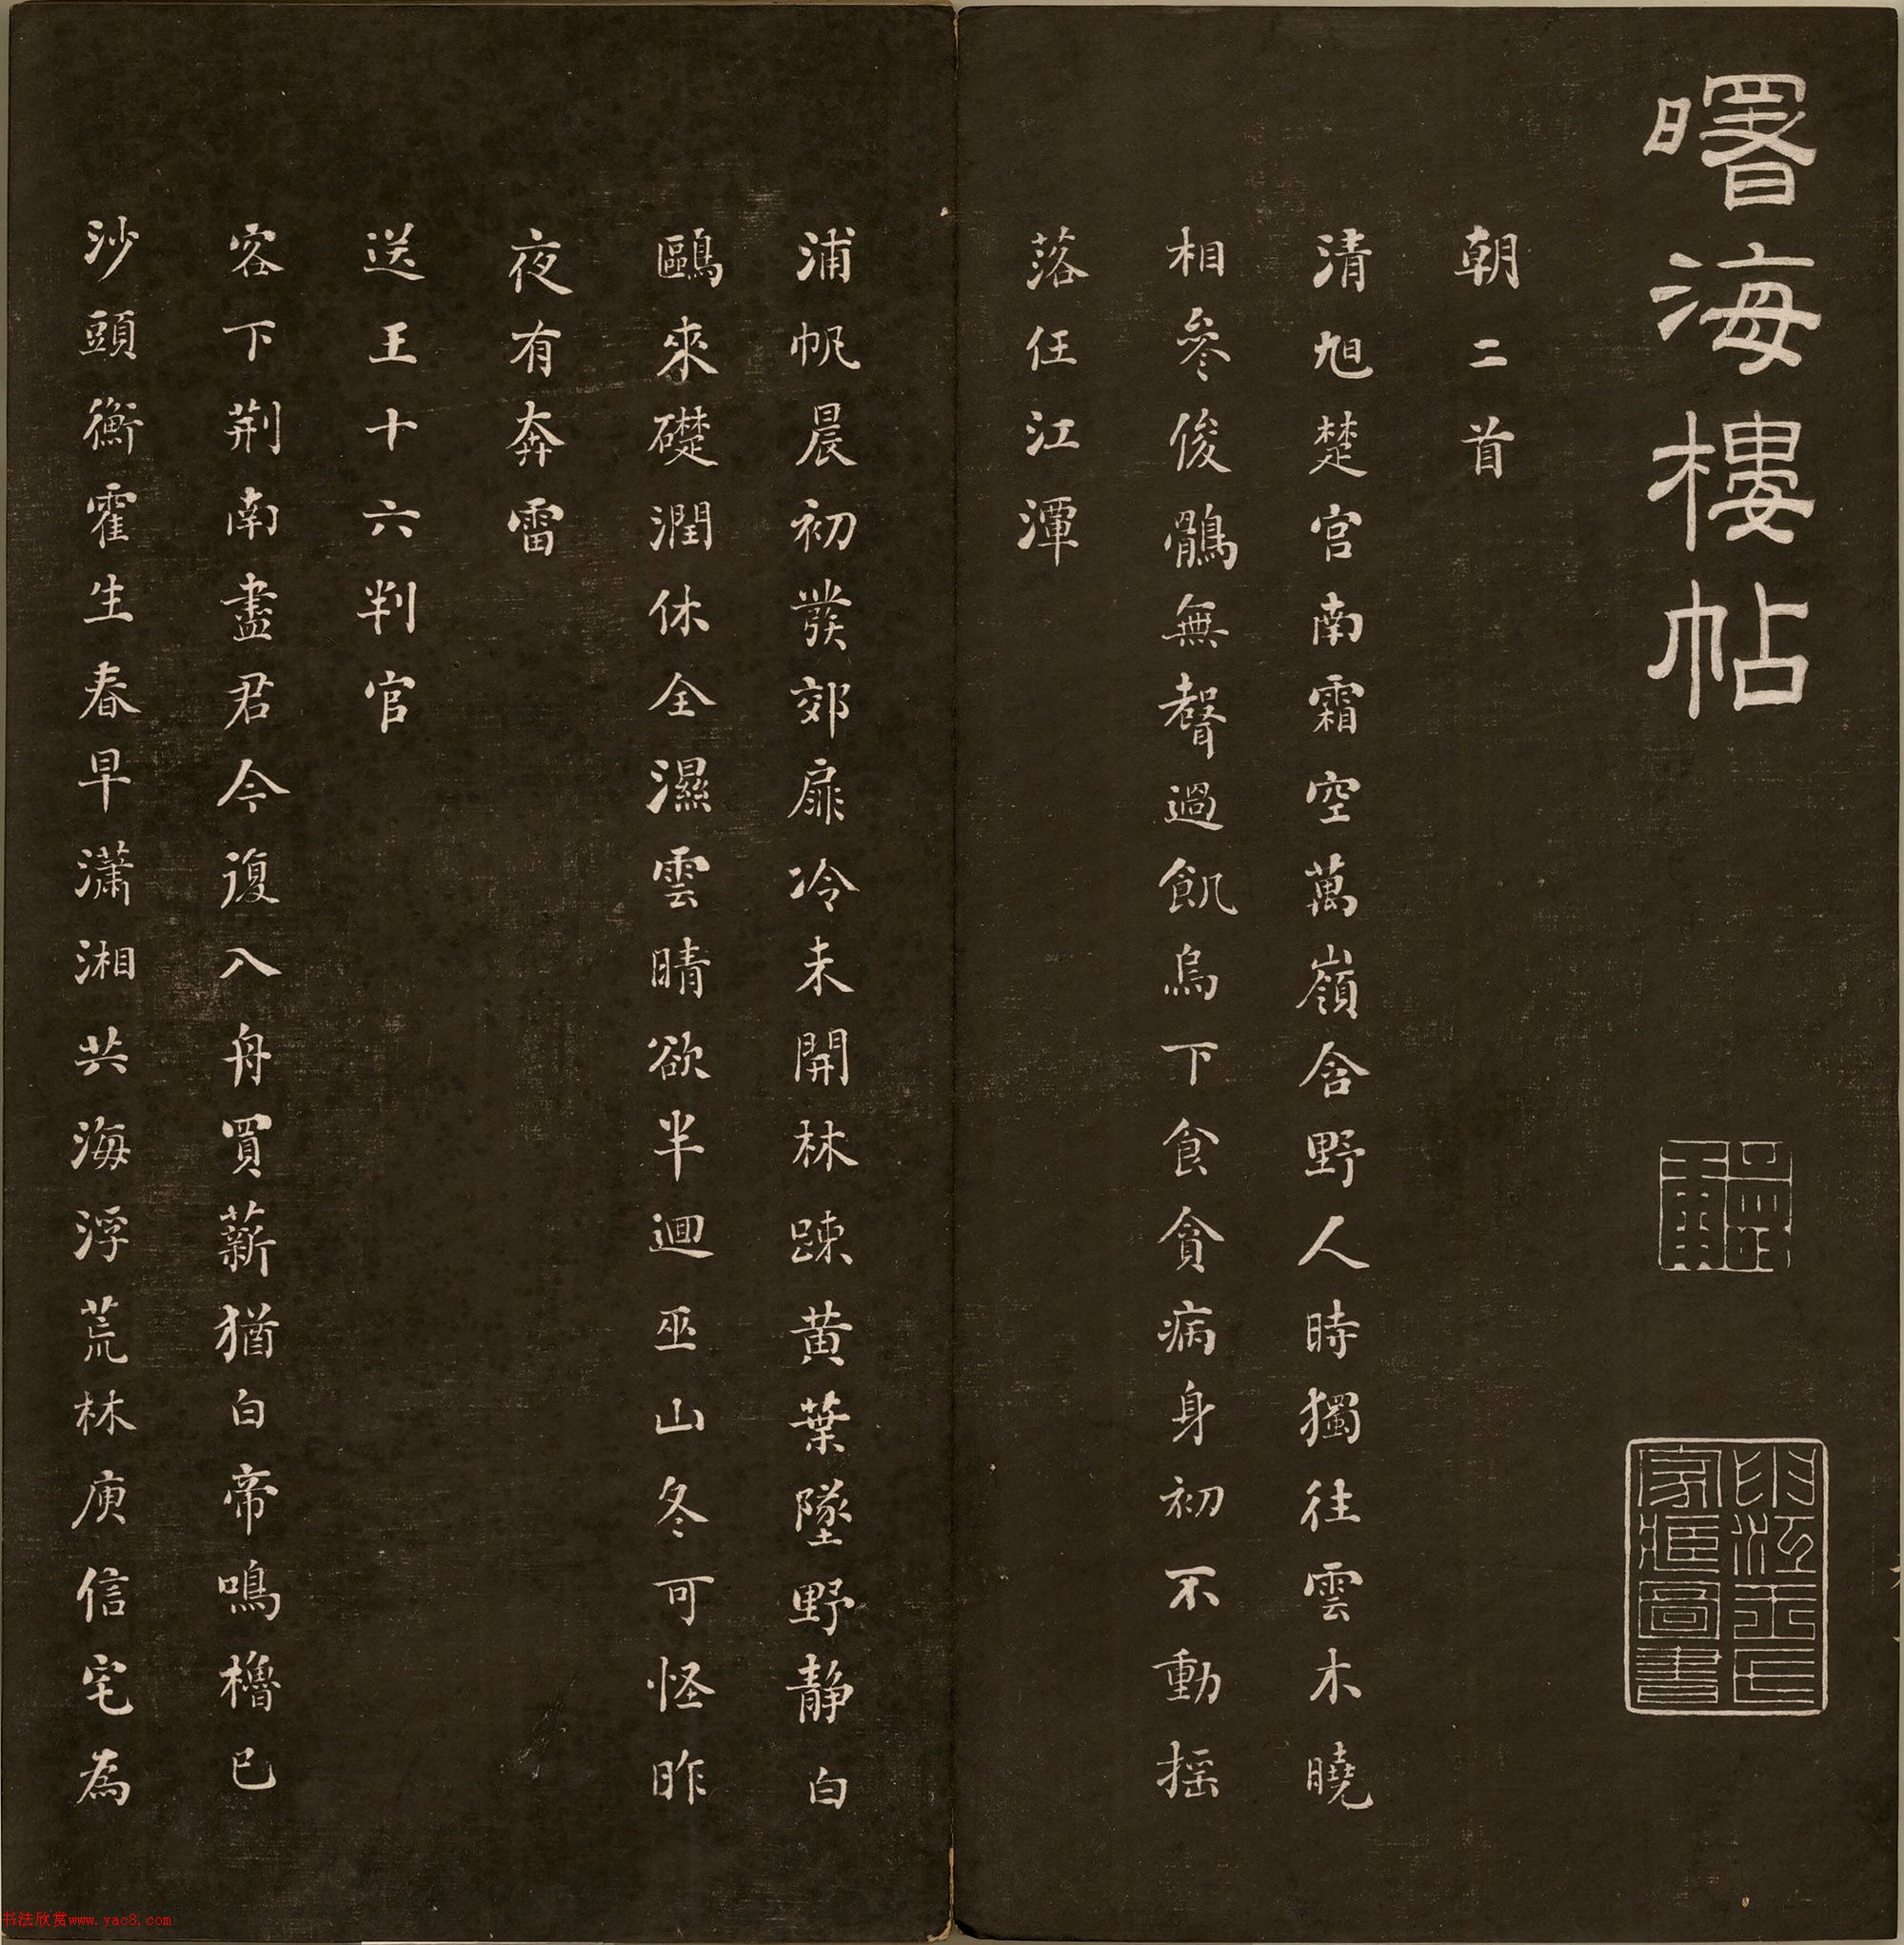 曙海樓帖
朝二首
清旭楚宮南霜空萬嶺含野人時獨往雲木曉
相參俊鶻無聲過飢烏下食貪病身初不動搖
落任江潭
浦帆晨初發郊扉冷未開林踈黄葉墜野靜白
鷗來礎潤休全濕雲晴欲半迴巫山冬可怪昨
夜有奔雷
送王十六判官
客下荆南盡君今復入舟買薪猶白帝鳴櫓已
沙頭衡霍生春早瀟湘共海浮荒林庾信宅為
家藏圖書
书法欣赏www.yac8.com